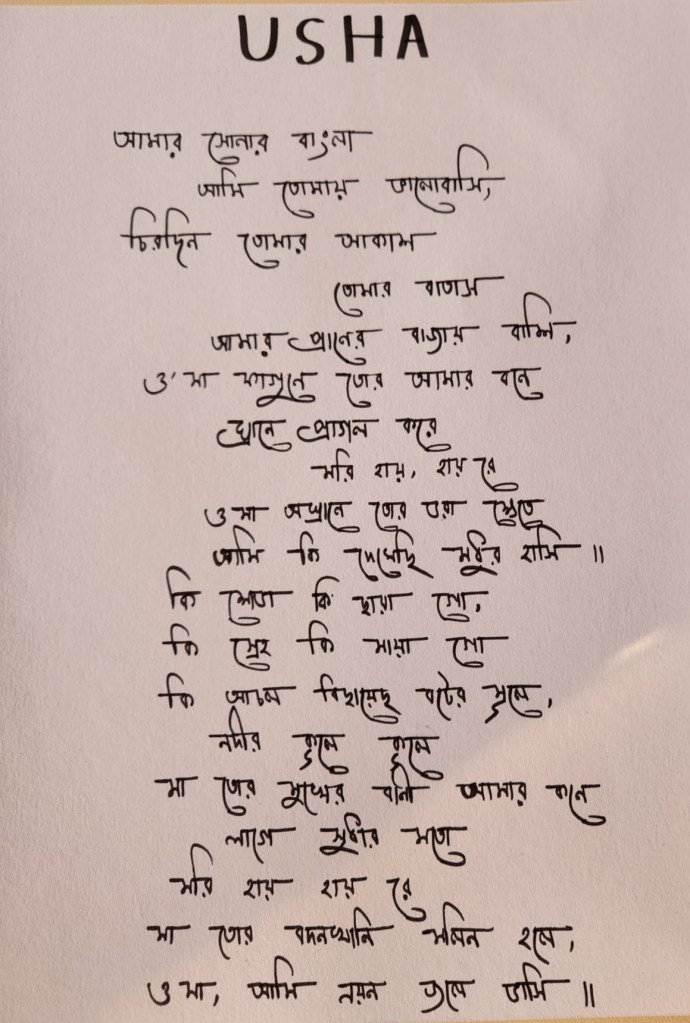 USHA
আমার সোনার বাংলা
আমি তোমায় ভালোবাসি,
চিরদিন তোমার আকাশ
তোমার বাতাস
আমার প্রানের বাজায় বাশি,
ও' মা ফাগুনে তোর আমার বনে
ঘ্রানে পাগল করে
মরি হায়, হায় রে
ও মা অঘ্রানে তোর ভরা ক্ষেতে
আমি কি দেখেছি মধুর হাসি ॥
কি শোভা কি ছায়া গো,
কি স্নেহ কি মায়া গো
কি আচল বিছায়েছ বটের মূলে,
নদীর কূলে কূলে
মা তোর মুখের বানী আমার কানে
লাগে সুধার মতো
মরি হায় হায় রে
মা তোর বদনখানি মলিন হলে,
ও মা, আমি নয়ন জলে ভাসি ॥